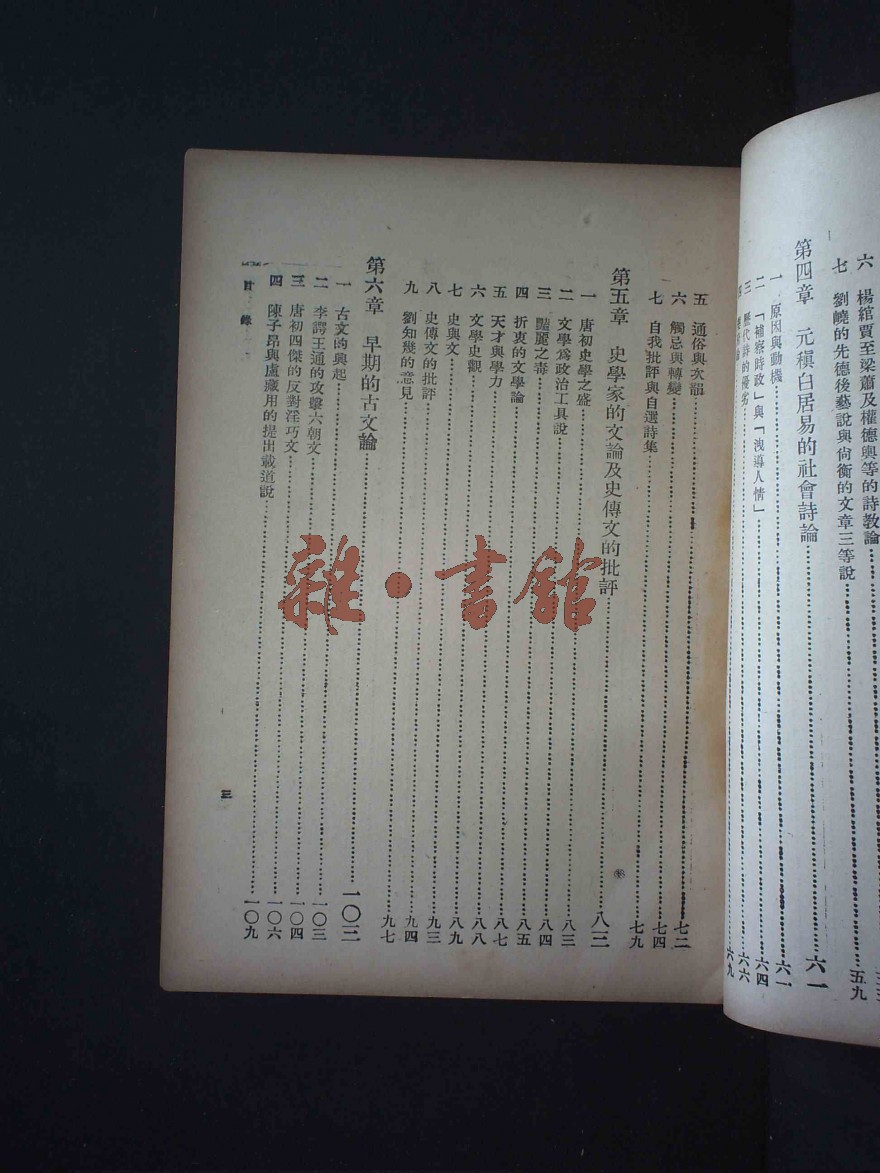 六 楊綰賈至梁蕭及權德輿等的詩教論
七 劉嶢的先德後藝說與尙衡的文章三等說……五九
第四章 元稹白居易的社會詩論……六一
一 原因與動機……六一
二 「補察時政」與「洩導人情」……六四
三 歷代詩的優劣……六六
六九
五 通俗與次韻……七二
六 觸忌與轉變……七四
七 自我批評與自選詩集……七九
第五章 史學家的文論及史傳文的批評……八三
一 唐初史學之盛……八三
二 文學爲政治工具說……八四
三 豔麗之毒……八五
四 折衷的文學論……八七
五 天才與學力……八八
六 文學史觀……八九
七 史與文……九三
八 史傳文的批評……九四
九 劉知幾的意見……九七
第六章 早期的古文論……一〇三
一 古文的興起……一〇三
二 李諤王通的攻擊六朝文……一〇四
三 唐初四傑的反對淫巧文……一〇六
四 陳子昂與盧藏用的提出載道說……一〇九
目錄
三
雜·書館